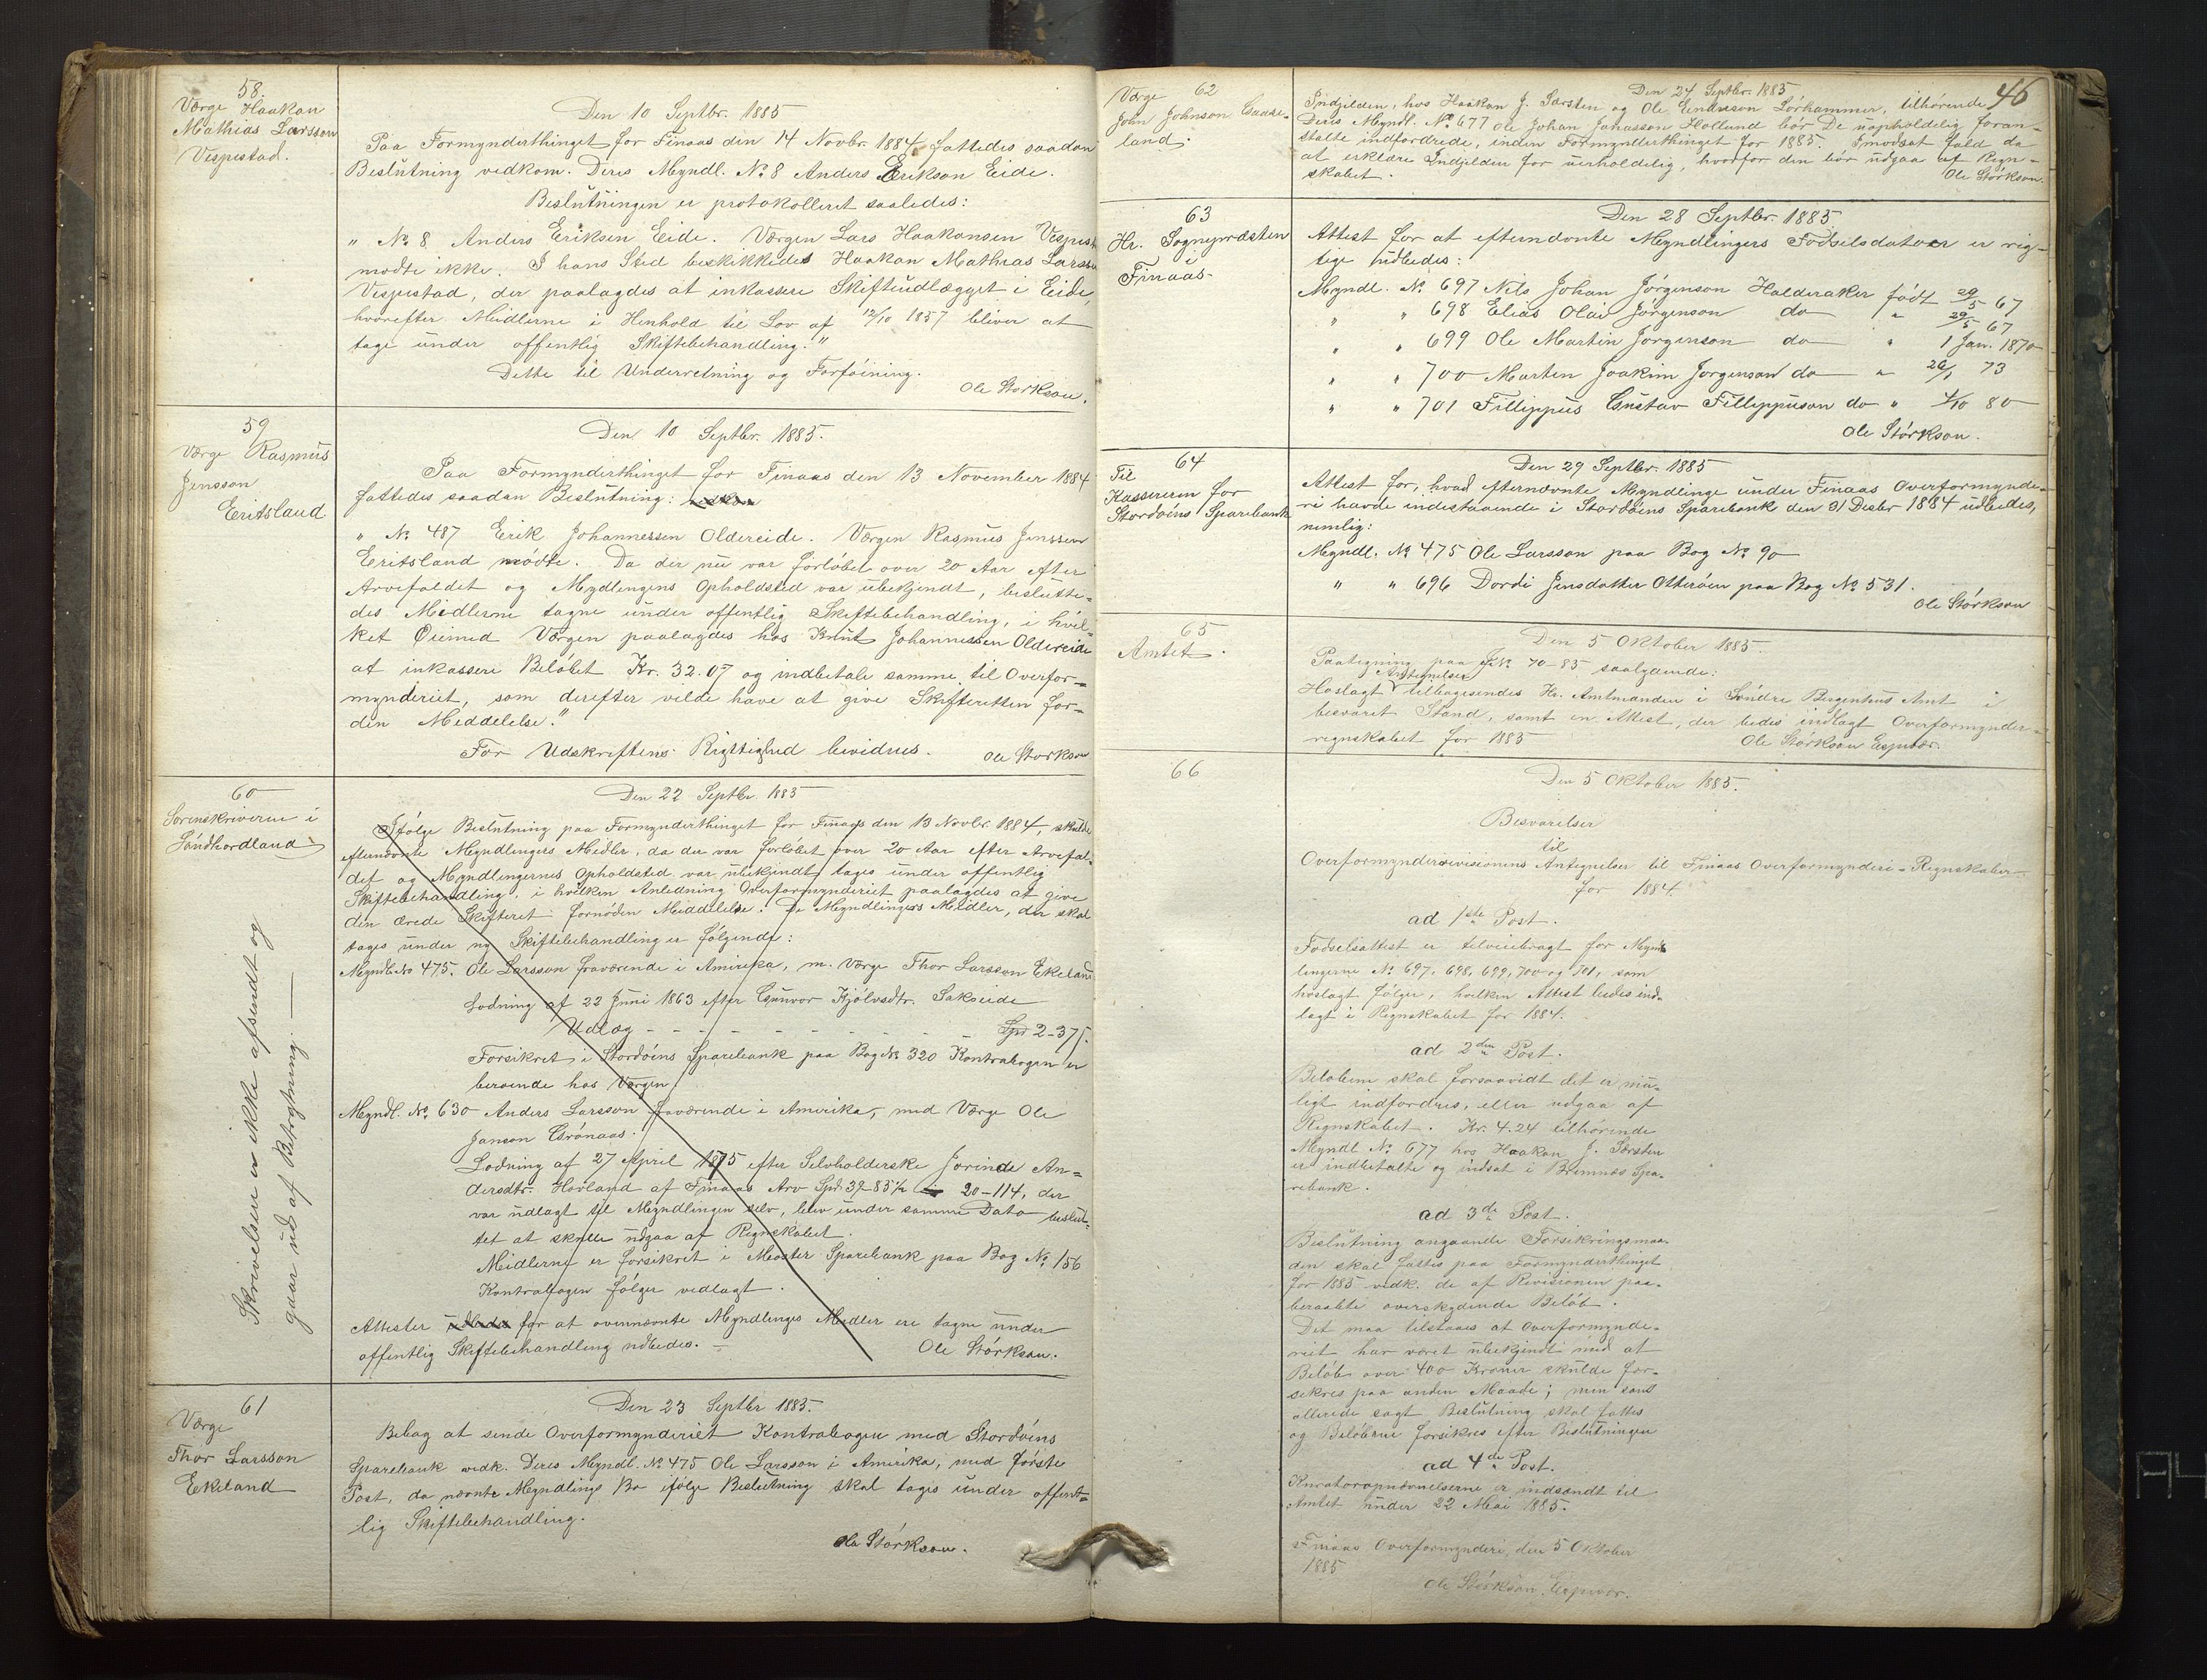 58.
Værge Haakon
Mathias Larsson
Vespestad.
Den 10 Septbr. 1885
Paa Formynderthinget for Finaas den 14 Novbr. 1884 fattedes saadan
Beslutning vedkom. Deres Myndl. No 8 Anders Erikson Eide.
Beslutningen er protokolleret saaledes:
" No 8 Anders Eriksen Eide. Værgen Lars Haakonsen Vespest
mødte ikke. I hans Sted beskikkedes Haakon Mathias Larsson
Vespestad, der paalagdes at inkassere Skifteudlægget i Eide,
hvorefter Midlerne i Henhold til Lov af 12/10 1857 bliver at
tage under offentlig Skiftebehandling."
Dette til Underretning og Forføining.
Ole Størkson.
59
Værge Rasmus
Jensson
Eeritsland
Den 10 Septbr. 1885.
Paa Formynderthinget for Finaas den 13 November 1884
fattedes saadan Beslutning: vedkom
" No 487 Erik Johannessen Oldereide. Værgen Rasmus Jenssen
Eeritsland mødte. Da der nu var forløbet over 20 Aar efter
Arvefaldet og Mydlingens Opholdsted var ubekjendt, beslutte-
des Midlerne tagne under offentlig Skiftebehandling, i hvil-
ket Øiemed Værgen paalagdes hos Knut Johannessen Oldereide
at inkassere Beløbet Kr. 32.07 og indbetale samme til Overfor-
mynderiet, som derefter vilde have at give Skifteretten for-
den Meddelelse."
For Udskriftens Rigttighed bevidnes.
Ole Størkson
60
Sorenskriveren i
Søndhordland
Skrivelsen er ikke afsendt og
gaar ud af Betragtning. —
Den 22 Septbr. 1885
Ifølge Beslutning paa Formynderthinget for Finaas den 13 Novbr. 1884, skulde
efternævnte Myndlingers Midler, da der var forløbet over 20 Aar efter Arvefal-
det og Myndlingernes Opholdsted var ubekjendt, tages under offentlig
Skiftebehandling, i hvilken Anledning Overformynderiet paalagdes at give
den ærede Skifteret fornøden Meddelelse. De Myndlingers Midler, der skal
tages under ny Skiftebehandling er følgende:
Myndl. No 475. Ole Larsson fraværende i Amerika, m. Værge Thor Larsson Ekeland
Lodning af 22 Juni 1863 efter Gunvor Kjølvsdtr. Sakseide
Udlæg - - - - - - - - - - Spd 2-37½.
Forsikret i Stordøens Sparebank paa Bog No 320 Kontrabogen er
beroende hos Værgen.
Myndl. No. 630 Anders Larsson fraværende i Amerika, med Værge Ole
Janson Grønaas.
Lodning af 27 April 1875 efter Selvholderske Jorinde An-
dersdtr. Hovland af Finaas Arv Spd. 39-85½ 20-114, der
var udlagt til Myndlingen selv, blev under samme Dato beslut-
tet at skulle udgaa af Regnskabet.
Midlerne er forsikret i Moster Sparebank paa Bog No. 156
Kontrabogen følger vedlagt.
Attester udbedes for at ovennævnte Myndlinges Midler ere tagne under
offentlig Skiftebehandling udbedes. —
Ole Størkson.
61
Værge
Thor Larsson
Ekeland
Den 23 Septbr 1885.
Behag at sende Overformynderiet Kontrabogen med Stordøens
Sparebank vedk. Deres Myndl. No 475 Ole Larsson i Amerika, med første
Post, da nævnte Myndlings Bo ifølge Beslutning skal tages under offent-
lig Skiftebehandling.
Ole Størkson.
46
62
Værge
John Johnson
land.
Den 24 Septbr. 1885
Indgjælden, hos Haakon J. Særsten og Ole Endresson Lørhammer, tilhørende
Deres Myndl. No 677 Ole Johan Johansson Holland bør De uopholdelig foran-
stalte indfordrede, inden Formynderthinget for 1885. I modsat fald da
at erklære Indgjelden for uerholdelig, hvorfor den bør udgaa af Regn-
skabet.
Ole Størkson.
63
Hr. Sognepræsten
i
Finaas
Den 28 Septbr. 1885
Attest for at efternævnte Myndlingers Fødselsdatoer er rig-
tige udbedes:
Myndl. No 697 Nils Johan Jørgenson Halderaker født 29/5 67
" " 698 Elias Olai Jørgenson do " 29/5 67
" " 699 Ole Martin Jørgenson do " 1 Jan. 1870
" " 700 Marten Joakim Jørgenson do " 26/1 73
" " 701 Fillippus Gustav Fillippuson do " 4/10 80
Ole Størkson.
64
Til
Kassereren for
Stordøens Sparebank
Den 29 Septbr. 1885
Attest for, hvad efternævnte Myndlinge under Finaas Overformynde-
ri havde indestaaende i Stordøens Sparebank den 31 Desbr 1884 udbedes,
nemlig:
Myndl. No 475 Ole Larsson paa Bog No 90
" " 696 Dordi Jensdatter Otterøen paa Bog No 531.
Ole Størkson
65
Amtet.
Den 5 Oktober 1885.
Paategning paa J.No. 70-85 saalydende:
Antegnelser
Hoslagt tilbagesendes Hr. Amtmanden i Søndre Bergenhus Amt i
besvaret Stand, samt en Attest, der bedes indlagt Overformynder-
regnskabet for 1885
Ole Størkson Espevær.
66
Den 5 Oktober 1885.
Besvarelser
til
Overformynderrevisionens Antegnelser til Finaas Overformynderi-Regnskaber
for 1884
ad 1ste Post.
Fødselsattest er tilveiebragt for Mynd-
lingerne No. 697, 698, 699, 700 og 701, som
hoslagt følger, hvilken Attest bedes ind-
lagt i Regnskabet for 1884.
ad 2den Post.
Beløbene skal forsaavidt det er mu-
ligt indfordres, eller udgaa af
Regnskabet. Kr. 4.24 tilhørende
Myndl No. 677 hos Haakon J. Særsten
er indbetalte og indsat i Bremnæs Spa-
rebank.
ad 3de Post.
Beslutning angaaende Forsikringsmaa-
den skal fattes paa Formynderthinget
for 1885 vedk. de af Revisionen paa-
beraabte overskydende Beløb.
Det maa tilstaaes at Overformynde-
riet har været ubekjendt med at
Beløb over 400 Kroner skulde for-
sikres paa anden Maade; men som
allerede sagt Beslutning skal fattes
og Beløbene forsikres efter Beslutningen
ad 4de Post.
Kuratoropnævnelserne er indsendt til
Amtet under 22 Mai 1885.
Finaas Overformynderi, den 5 Oktober
1885
Ole Størkson, Espevær.